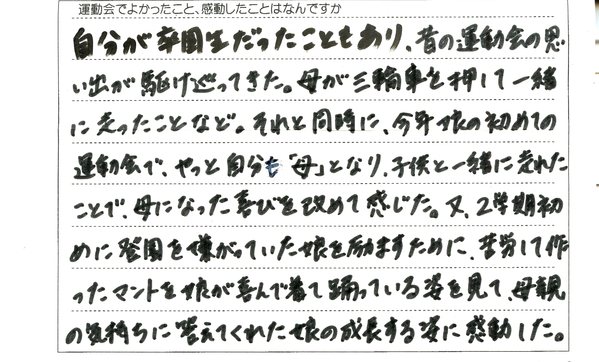 運動会でよかったこと、感動したことはなんですか
自分が卒園生だったこともあり、昔の運動会の思
い出が駆け巡ってきた。母が三輪車を押して一緒
に走ったことなど。それと同時に、今年娘の初めての
運動会で、やっと自分も「母」となり、子供と一緒に走れた
ことで、母になった喜びを改めて感じた。又、2学期初
めに登園を嫌がっていた娘を励ますために、苦労して作
ったマントを娘が喜んで着て踊っている姿を見て、母親
の気持ちに答えてくれた娘の成長する姿に感動した。